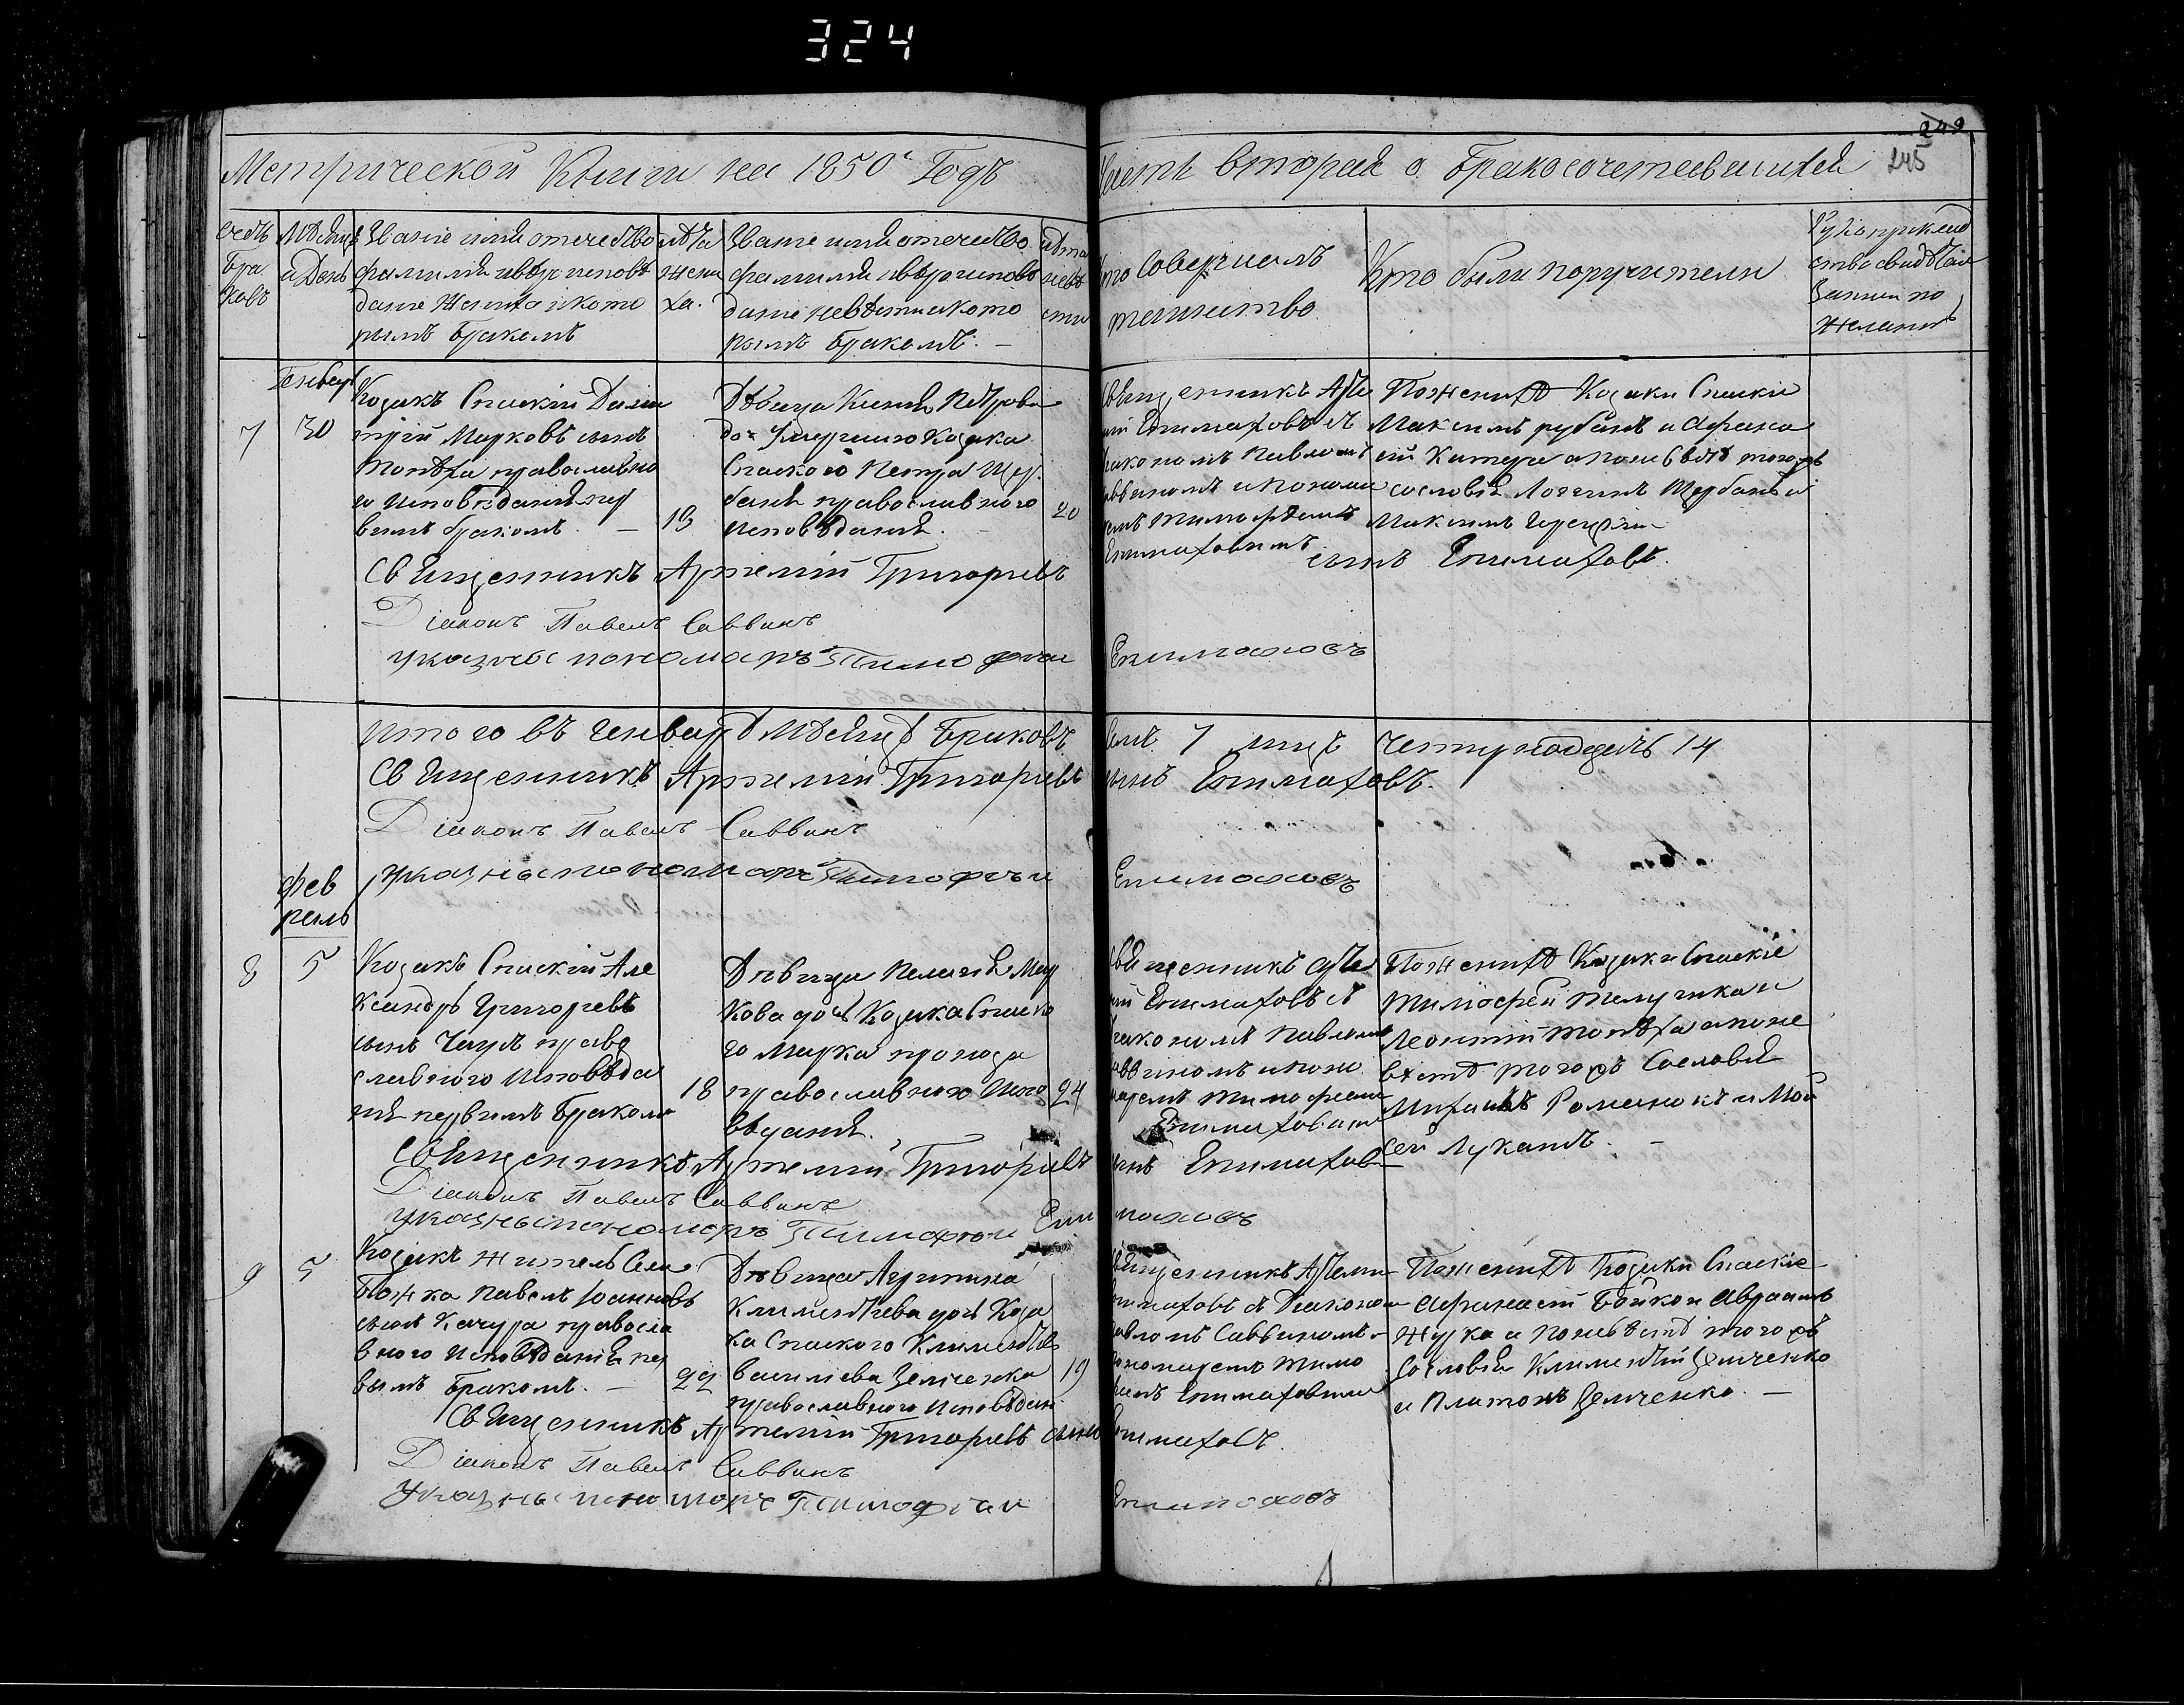 324
249
245
Метрической Книги на 1850й Годъ
Часть вторая о Бракосочетавшихся
счетъ Бра ковъ
Мѣсяцъ и День
Званіе имя отечество
фамилія и вѣроисповѣ
даніе Жениха и кото
рымъ бракомъ
лѣта жени ха.
Званіе имя отечество
фамилія и вѣроисповѣ
даніе невѣсти и кото
рымъ бракомъ. —
лѣта невѣ сти
Кто Совершалъ
таинство
Кто были поручители
Рукоприклад
ство свидѣтел
Записи по
Желанію
Генварь
7
30
Козакъ Спаскій Дими
трій Марковъ сынъ
Топѣха православно
го исповѣданія пер
вымъ бракомъ. —
19
Дѣвица Ксенія Петрова
доч Умершаго Козака
Спаского Петра Щер
баня православного
исповѣданія. —
20
Священникъ Арте
мій Епимаховъ съ
Діакономъ Павломъ
Саввиномъ и понома
ремъ Тимофѣемъ
Епимаховимъ
По женихѣ Козаки Спаскіе
Максимъ рубанъ и Афана
сій Катера а по невѣстѣ того жъ
сословія Логгинъ Щербань и
Максимъ
Священникъ Артемій Григорьевъ сынъ Епимаховъ.
Діаконъ Павелъ Саввинъ
указны пономаръ Тимофѣи Епимаховъ
Итого въ генварѣ мѣсяцѣ Браковъ
7 лицъ Четирнадцать 14
Священникъ Артемій Григорьевъ сынъ Епимаховъ.
Діаконъ Павелъ Саввинъ
указны пономаръ Тимофѣи Епимаховъ
Фев
раль
8
5
Козакъ Спаскій Але
ксандръ Григорьевъ
сынъ Чаулъ право
славного Исповѣда
нія первымъ Бракомъ
18
Дѣвица Пелагія Мар
кова доч Козака Спаско
го Марка
православного Испо
вѣданія.
24
Священникъ Арте
мій Епимаховъ съ
Діакономъ Павломъ
Саввиномъ и поно
маремъ Тимофѣемъ
Епимаховимъ
По женихѣ Козаки Спаскіе
Тимофей и
Леонтій Топѣха а по не
вѣстѣ того жъ Сословія
Михаилъ Романокъ и Мой
сей Лукашъ. —
Священникъ Артемій Григорьевъ сынъ Епимаховъ
Діаконъ Павелъ Саввинъ
указны пономаръ Тимофѣи Епимаховъ
9
5
Козакъ житель Села
Божка Павелъ Іоанновъ
сынъ Качура правосла
вного Исповѣданія пер
вымъ Бракомъ. —
22
Дѣвица Агрипина
Климентіева доч Коза
ка Спаского Климентія
Василіева Земченка
православного Исповѣдан
19
Священникъ Артемій
Епимаховъ съ Діакономъ
Павломъ Саввиномъ и
пономаремъ Тимо
фѣемъ Епимаховимъ
По женихѣ Козаки Спаскіе
Афанасій Бойко и Авраамъ
Жука а по невѣстѣ того жъ
Сословія Климентій Земченко
и Платонъ Земченко. —
Священникъ Артемій Григорьевъ сынъ Епимаховъ.
Діаконъ Павелъ Саввинъ
Указны пономаръ Тимофѣи Епимаховъ